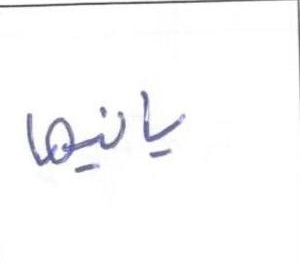 يانيها